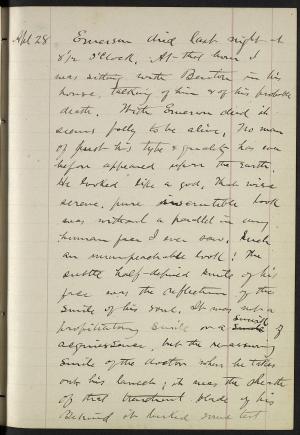 Apl 28 Emerson died last night at
8 1/2 o'clock. At that hour I
was sitting with Benton in his
house, talking of him & of his probable
death. With Emerson dead it
seems folly to be alive. No man
of just his type & quality has ever
before appeared upon the earth.
He looked like a god. That wise
serene, pure inscrutable look
was without a parallel in any
human face I ever saw. Such
an unimpeachable look! The
subtle half-defined smile of his
face was the reflection of the
smile of his soul. It was not a
propitiatory smile or a smile of
acquiescence, but the reassuring
smile of the doctor when he takes
out his lancet; it was the sheath
of that trenchant blade of his
Behind it lurked some test